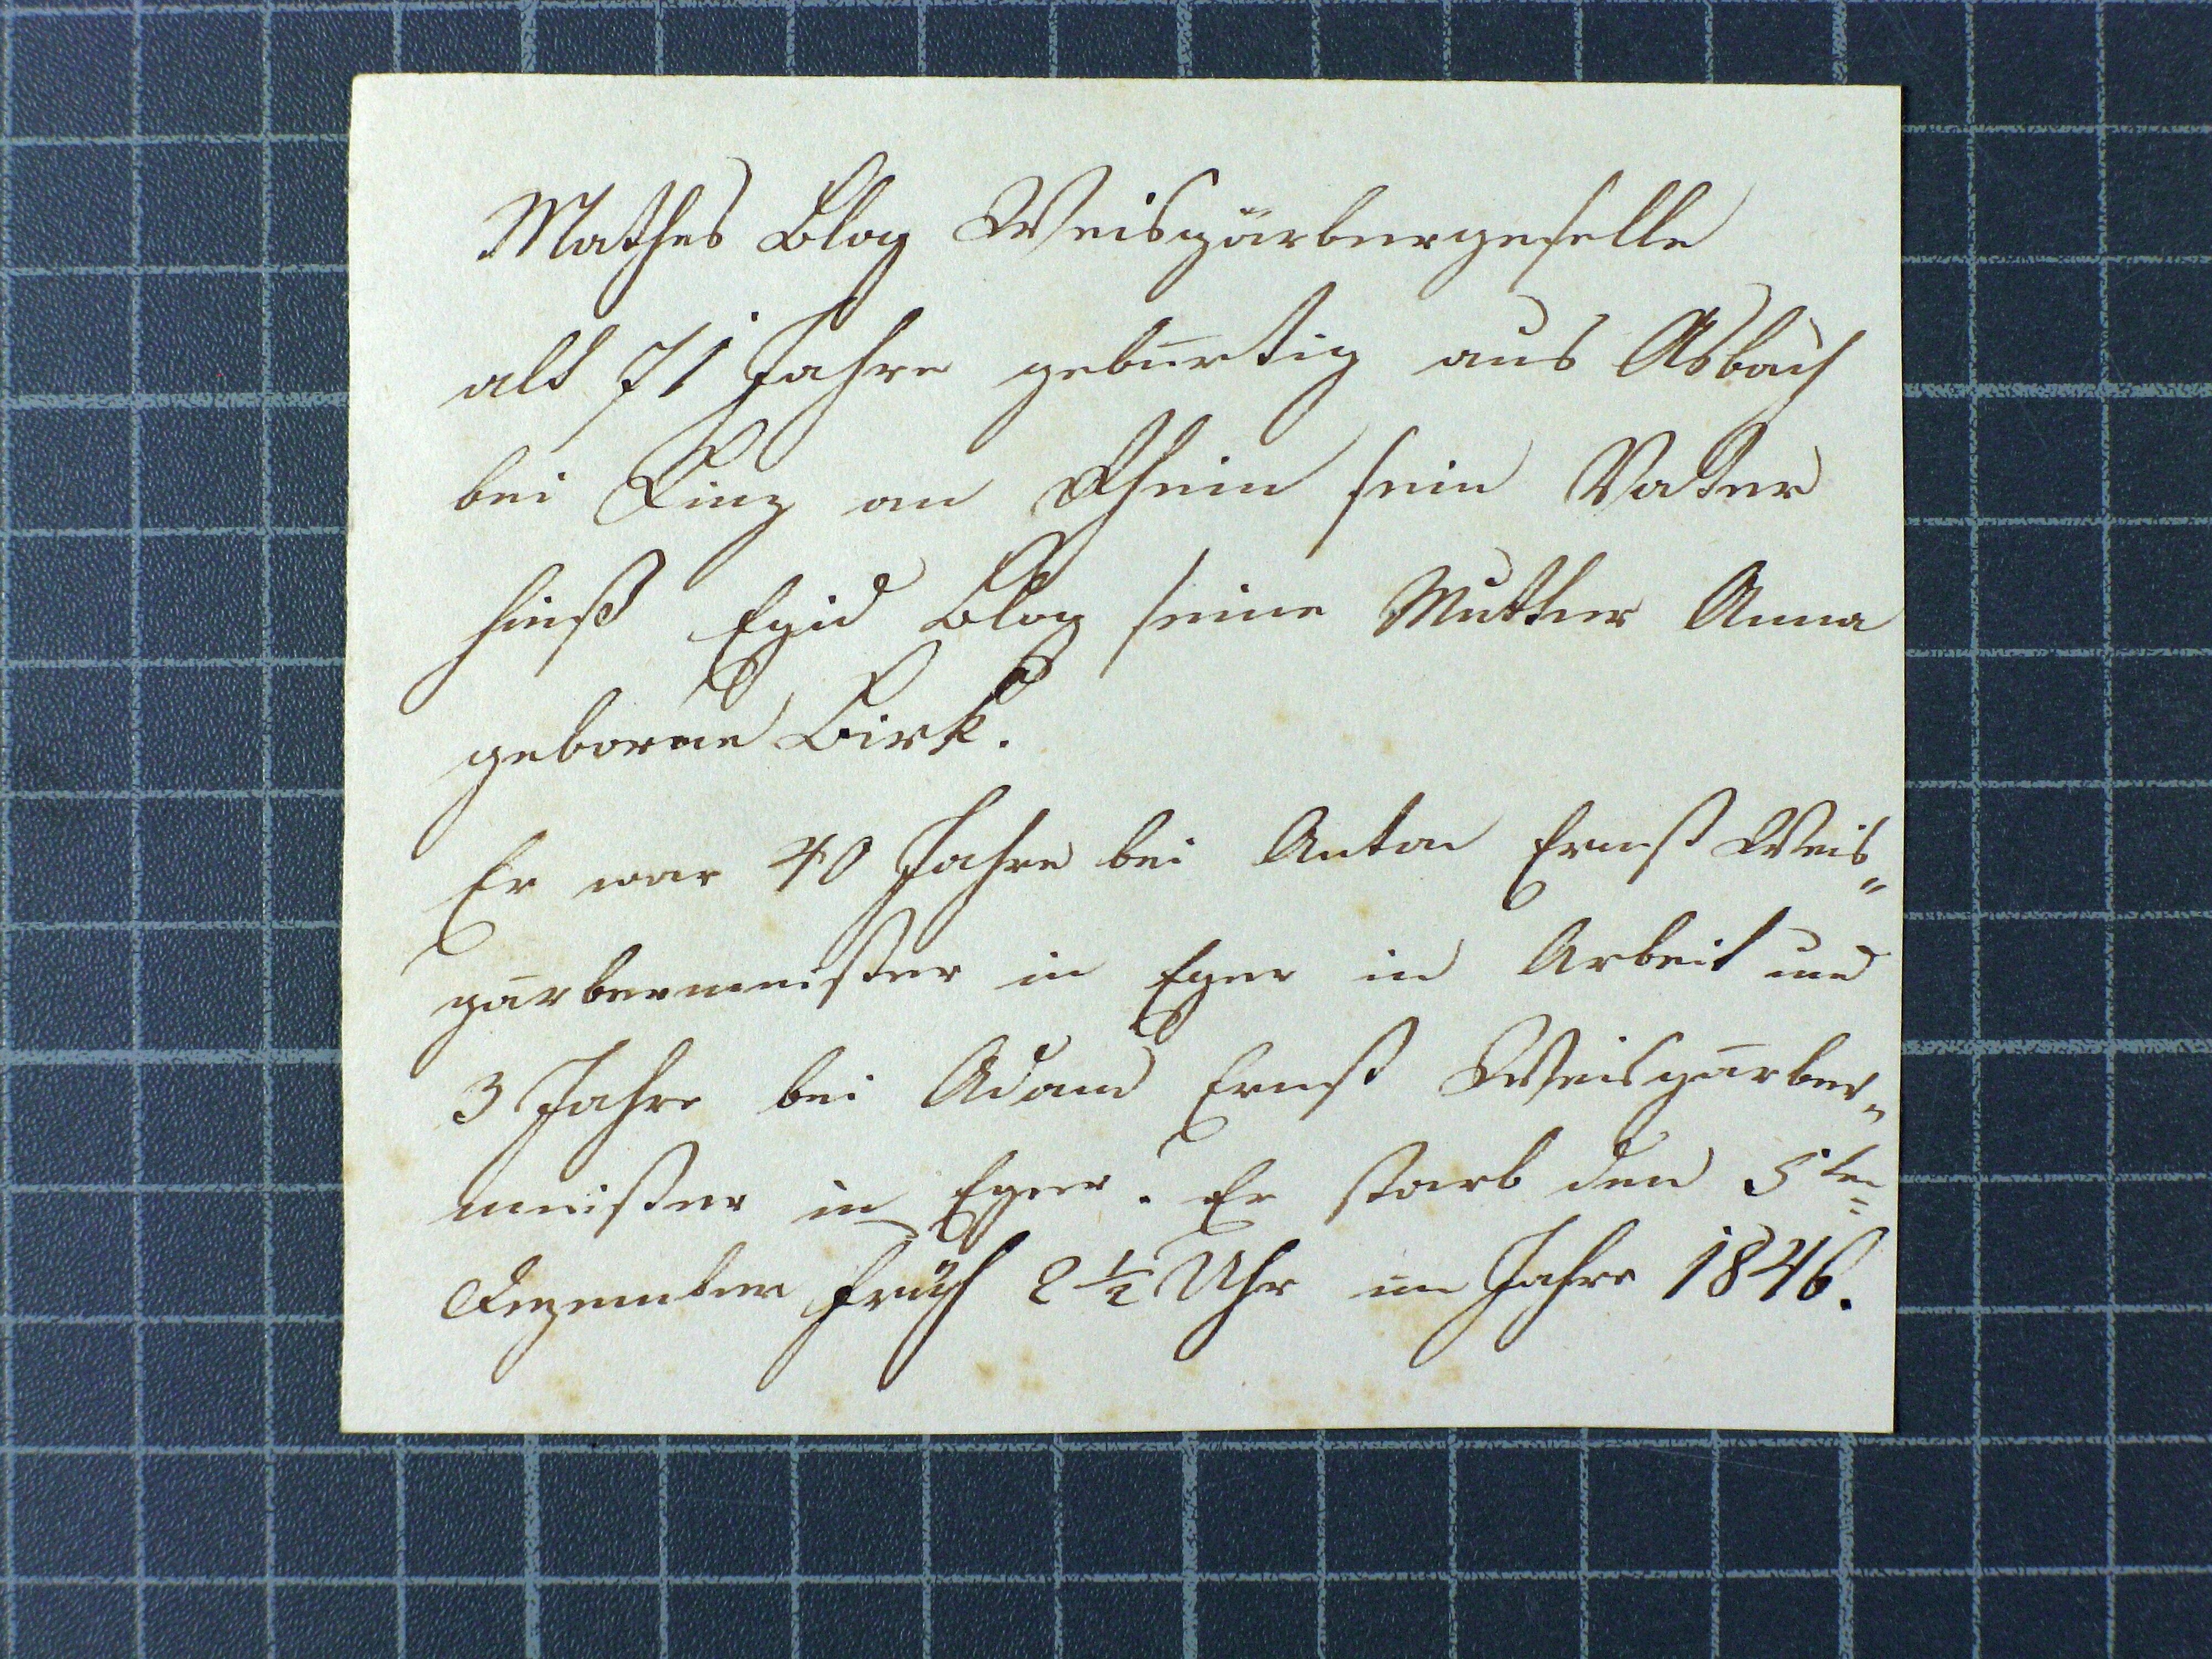 Mathes Blog Weisgärbergeselle
alt 71 Jahre gebürtig aus Asbach
bei Linz am Rhein sein Vater
hieß Egid Blog seine Mutter Anna
geborne Birk.
Er war 40 Jahre bei Anton Ernst Weis„
gärbermeister in Eger in Arbeit und
3 Jahre bei Adam Ernst Weisgärber„
meister in Eger. Er starb den 5ten
Dezember früh 2 ½ Uhr im Jahre 1846.